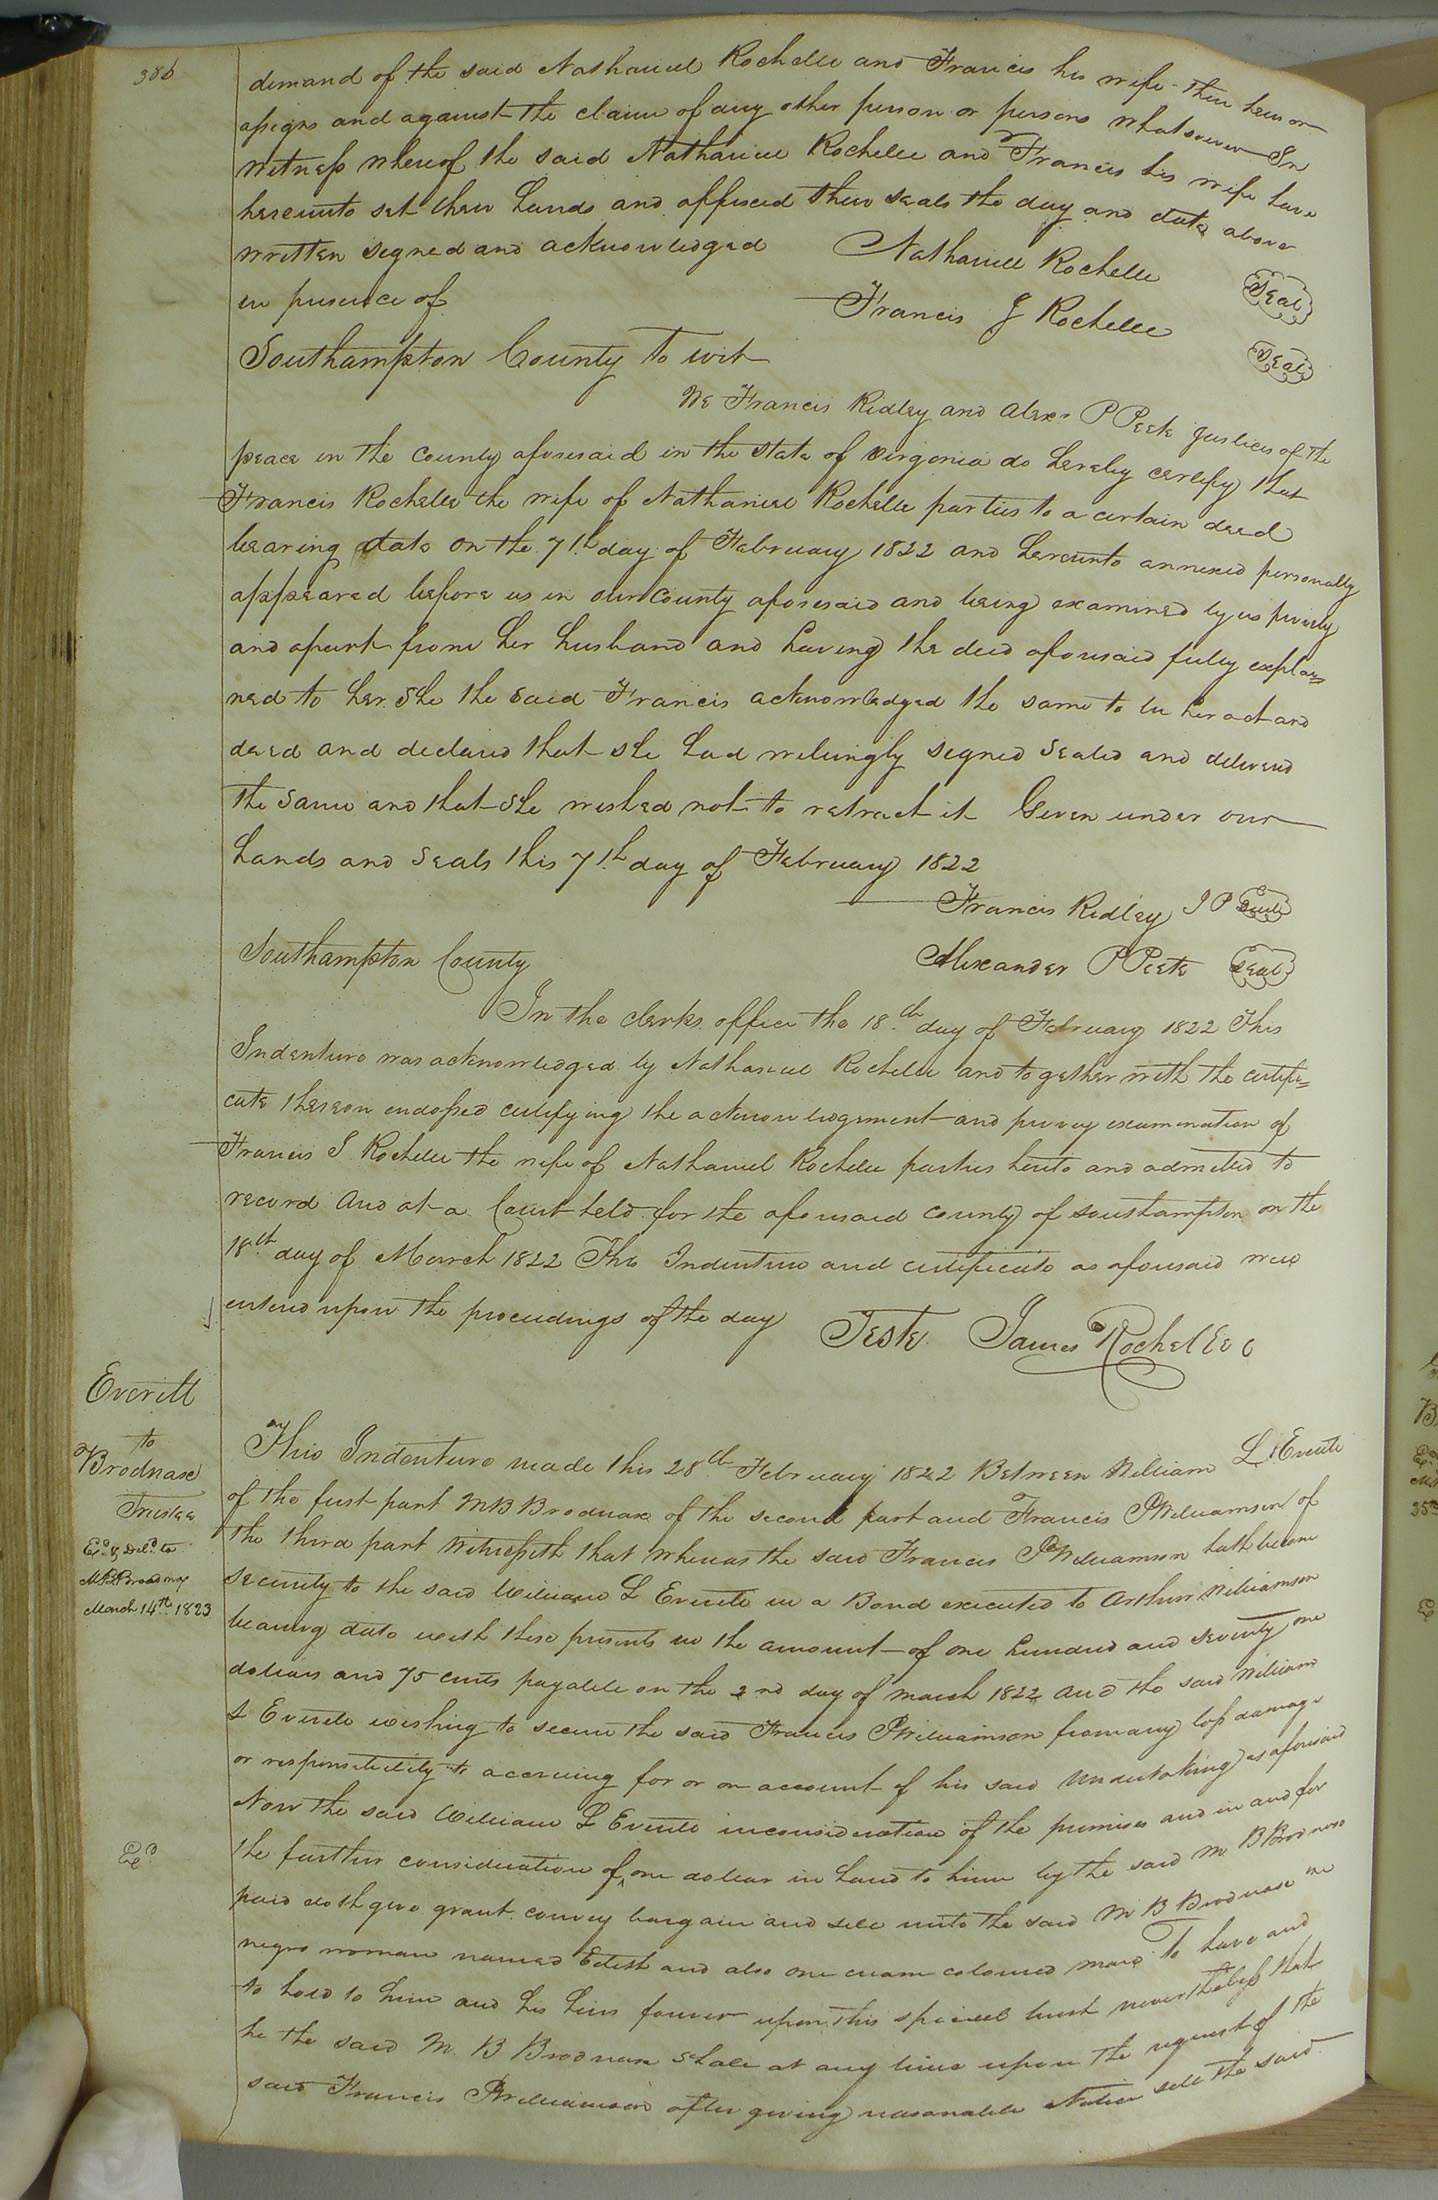 386
demand of the said Nathaniel Rochelle and Francis his wife their heirs or
assigns and against the claim of any other person or persons whatsoever In
witness whereof the said Nathaniel Rochelle and Francis his wife have
hereunto set their hands and affixed their seals the day and date above
written signed and acknowledged
in presence of
Nathaniel Rochelle Seal
Francis J Rochelle Seal
Southampton County to wit
We Francis Ridley and Alexr P Peete Justices of the
peace in the County aforesaid in the State of Virginia do hereby certify that
Francis Rochelle the wife of Nathaniel Rochelle parties to a certain deed
bearing date on the 7th day of February 1822 and hereunto annexed personally
appeared before us in our County aforesaid and being examined by us privily
and apart from her husband and having the deed aforesaid fully explai=
ned to her She the said Francis acknowledged the same to be her act and
deed and declared that she had willingly signed sealed and delivered
the same and that She wished not to retract it Given under our
hands and seals this 7th day of February 1822
Francis Ridley J P Seal
Alexander P Peete Seal
Southampton County
In the clerks office the 18th day of February 1822 This
Indenture was acknowledged by Nathaniel Rochelle and together with the certifi=
cate thereon endorsed certifying the acknowledgement and privy examination of
Francis J Rochelle the wife of Nathaniel Rochelle parties hereto and admitted to
record And at a Court held for the aforesaid County of Southampton on the
18th day of March 1822 This Indenture and certificate as aforesaid were
entered upon the proceedings of the day
Teste James Rochelle C
Everitt
to
Brodnax
Trustee
Exd & Deld to
M B Brodnax
March 14th 1823
This Indenture made this 28th February 1822 Between William L Everitt
of the first part M B Brodnax of the second part and Francis P Williamson of
the third part Witnesseth that whereas the said Francis P Williamson hath become
security to the said William L Everitt in a Bond executed to Arthur Williamson
bearing date with these presents in the amount of one hundred and seventy one
dollars and 75 cents payable on the 2nd day of March 1822 and the said William
L Everitt wishing to secure the said Francis P Williamson from any loss damage
or responsibility to accruing for or on account of his said undertaking as aforesaid
Now the said William L Everitt inconsideration of the premises and in and for
the further consideration of one dollar in hand to him by the said M B Brodnax
paid doth give grant convey bargain and sell unto the said M B Brodnax one
negro woman named Edith and also one cream coloured mare To have and
to hold to him and his heirs forever upon this special trust nevertheless that
he the said M. B Brodnax shall at any time upon the request of the
said Francis P Williamson after giving reasonable Notice sell the said
Exd